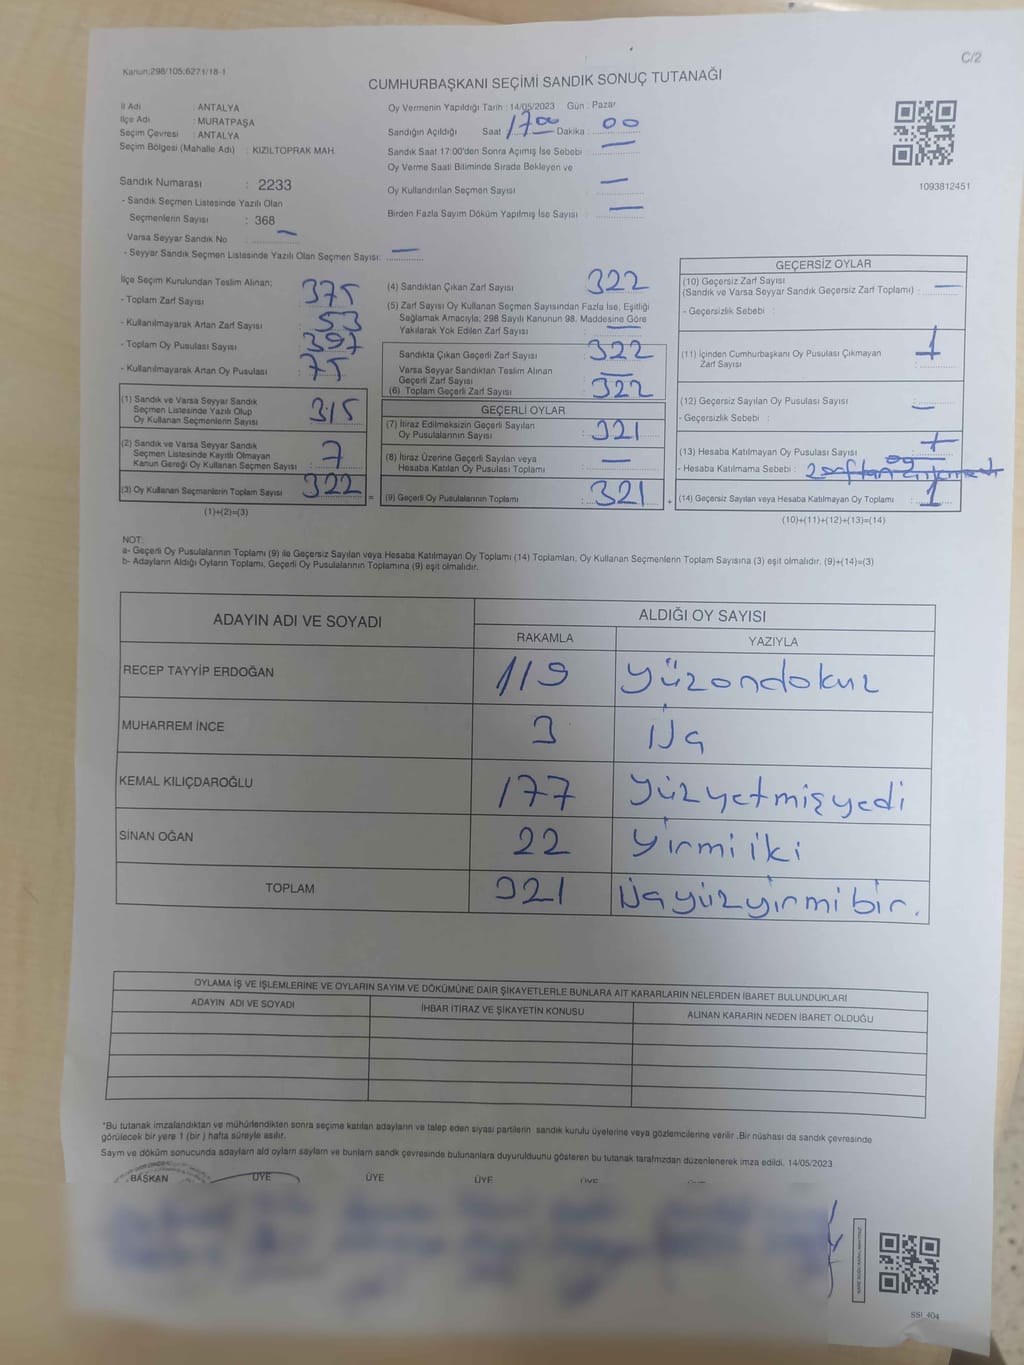 C/2
Kanun:298/105;6271/18-1
CUMHURBAŞKANI SEÇİMİ SANDIK SONUÇ TUTANAĞI
İl Adı : ANTALYA
İlçe Adı : MURATPAŞA
Seçim Çevresi : ANTALYA
Seçim Bölgesi (Mahalle Adı) : KIZILTOPRAK MAH.
Sandık Numarası : 2233
- Sandık Seçmen Listesinde Yazılı Olan
Seçmenlerin Sayısı : 368
Varsa Seyyar Sandık No —
- Seyyar Sandık Seçmen Listesinde Yazılı Olan Seçmen Sayısı: —
Oy Vermenin Yapıldığı Tarih : 14/05/2023 Gün : Pazar
Sandığın Açıldığı Saat 17 00 Dakika : 00
Sandık Saat 17:00'den Sonra Açımış İse Sebebi : —
Oy Verme Saati Bitiminde Sırada Bekleyen ve
Oy Kullandırılan Seçmen Sayısı —
Birden Fazla Sayım Döküm Yapılmış İse Sayısı —
1093812451
İlçe Seçim Kurulundan Teslim Alınan;
- Toplam Zarf Sayısı : 375
- Kullanılmayarak Artan Zarf Sayısı : 53
- Toplam Oy Pusulası Sayısı : 397
- Kullanılmayarak Artan Oy Pusulası : 75
(1) Sandık ve Varsa Seyyar Sandık
Seçmen Listesinde Yazılı Olup
Oy Kullanan Seçmenlerin Sayısı : 315
(2) Sandık ve Varsa Seyyar Sandık
Seçmen Listesinde Kayıtlı Olmayan
Kanun Gereği Oy Kullanan Seçmen Sayısı : 7
(3) Oy Kullanan Seçmenlerin Toplam Sayısı : 322 =
(1)+(2)=(3)
(4) Sandıktan Çıkan Zarf Sayısı : 322
(5) Zarf Sayısı Oy Kullanan Seçmen Sayısından Fazla İse, Eşitliği
Sağlamak Amacıyla; 298 Sayılı Kanunun 98. Maddesine Göre
Yakılarak Yok Edilen Zarf Sayısı : —
Sandıkta Çıkan Geçerli Zarf Sayısı : 322
Varsa Seyyar Sandıktan Teslim Alınan
Geçerli Zarf Sayısı : —
(6) Toplam Geçerli Zarf Sayısı : 322
GEÇERLİ OYLAR
(7) İtiraz Edilmeksizin Geçerli Sayılan
Oy Pusulalarının Sayısı : 321
(8) İtiraz Üzerine Geçerli Sayılan veya
Hesaba Katılan Oy Pusulası Toplamı : —
(9) Geçerli Oy Pusulalarının Toplamı : 321 +
GEÇERSİZ OYLAR
(10) Geçersiz Zarf Sayısı
(Sandık ve Varsa Seyyar Sandık Geçersiz Zarf Toplamı) : —
- Geçersizlik Sebebi :
(11) İçinden Cumhurbaşkanı Oy Pusulası Çıkmayan 1
Zarf Sayısı
(12) Geçersiz Sayılan Oy Pusulası Sayısı : —
- Geçersizlik Sebebi :
(13) Hesaba Katılmayan Oy Sayısı
- Hesaba Katılmama Sebebi :
(14) Geçersiz Sayılan veya Hesaba Katılmayan Oy Toplamı : 1
(10)+(11)+(12)+(13)=(14)
NOT:
a- Geçerli Oy Pusulalarının Toplamı (9) ile Geçersiz Sayılan veya Hesaba Katılmayan Oy Toplamı (14) Toplamları, Oy Kullanan Seçmenlerin Toplam Sayısına (3) eşit olmalıdır. (9)+(14)=(3)
b- Adayların Aldığı Oyların Toplamı, Geçerli Oy Pusulalarının Toplamına (9) eşit olmalıdır.
ADAYIN ADI VE SOYADI ALDIĞI OY SAYISI
RAKAMLA YAZIYLA
RECEP TAYYİP ERDOĞAN 119 yüzondokuz
MUHARREM İNCE 3 üç
KEMAL KILIÇDAROĞLU 177 yüzyetmişyedi
SİNAN OĞAN 22 yirmiiki
TOPLAM 321 üçyüzyirmibir.
OYLAMA İŞ VE İŞLEMLERİNE VE OYLARIN SAYIM VE DÖKÜMÜNE DAİR ŞİKAYETLERLE BUNLARA AİT KARARLARIN NELERDEN İBARET BULUNDUKLARI
ADAYIN ADI VE SOYADI İHBAR İTİRAZ VE ŞİKAYETİN KONUSU ALINAN KARARIN NEDEN İBARET OLDUĞU
*Bu tutanak imzalandıktan ve mühürlendikten sonra seçime katılan adayların ve talep eden siyasi partilerin sandık kurulu üyelerine veya gözlemcilerine verilir .Bir nüshası da sandık çevresinde
görülecek bir yere 1 (bir ) hafta süreyle asılır.
Sayım ve döküm sonucunda adayların ald oyların sayların ve bunların sandk çevresinde bulunanlara duyurulduunu gösteren bu tutanak tarafmzdan düzenlenerek imza edildi. 14/05/2023
BAŞKAN ÜYE ÜYE ÜYE ÜYE
SSI_404